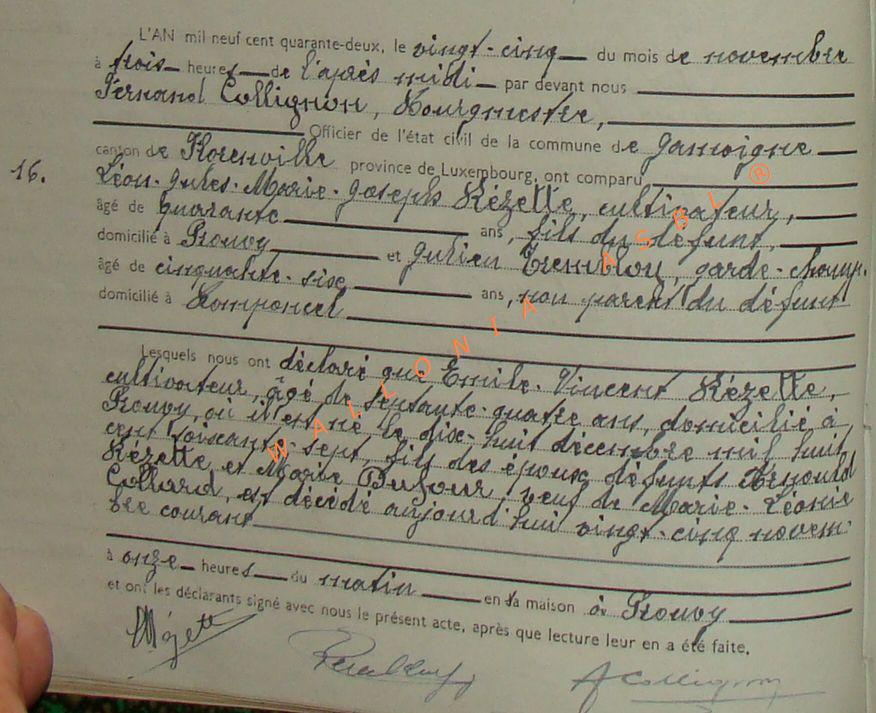 L'AN mil neuf cent quarante-deux, le vingt-cinq du mois de novembre
à trois heures de l'après midi par devant nous
Fernand Collignon, Bourgmestre,
Officier de l'état civil de la commune de Jamoigne
16.
canton de Florenville province de Luxembourg, ont comparu
Léon-Jules-Marie-Joseph Rézette, cultivateur,
âgé de quarante ans, fils du défunt,
domicilié à Prouvy et Julien Tremblou, garde-champ.
âgé de cinquante-six ans, non parent du défunt
domicilié à Romponcel
Lesquels nous ont déclaré que Emile-Vincent Rézette,
cultivateur, âgé de septante-quatre ans, domicilié à
Prouvy, où il est né le dix-huit décembre mil huit
cent soixante-sept, fils des époux défunts Arnould
Rézette et Marie Dufour, veuf de Marie-Léonie
Collard, est décédé aujourd'hui vingt-cinq novem-
bre courant
à onze heures du matin en sa maison à Prouvy
et ont les déclarants signé avec nous le présent acte, après que lecture leur en a été faite.
Collignon
WALLONIA ASBL ®